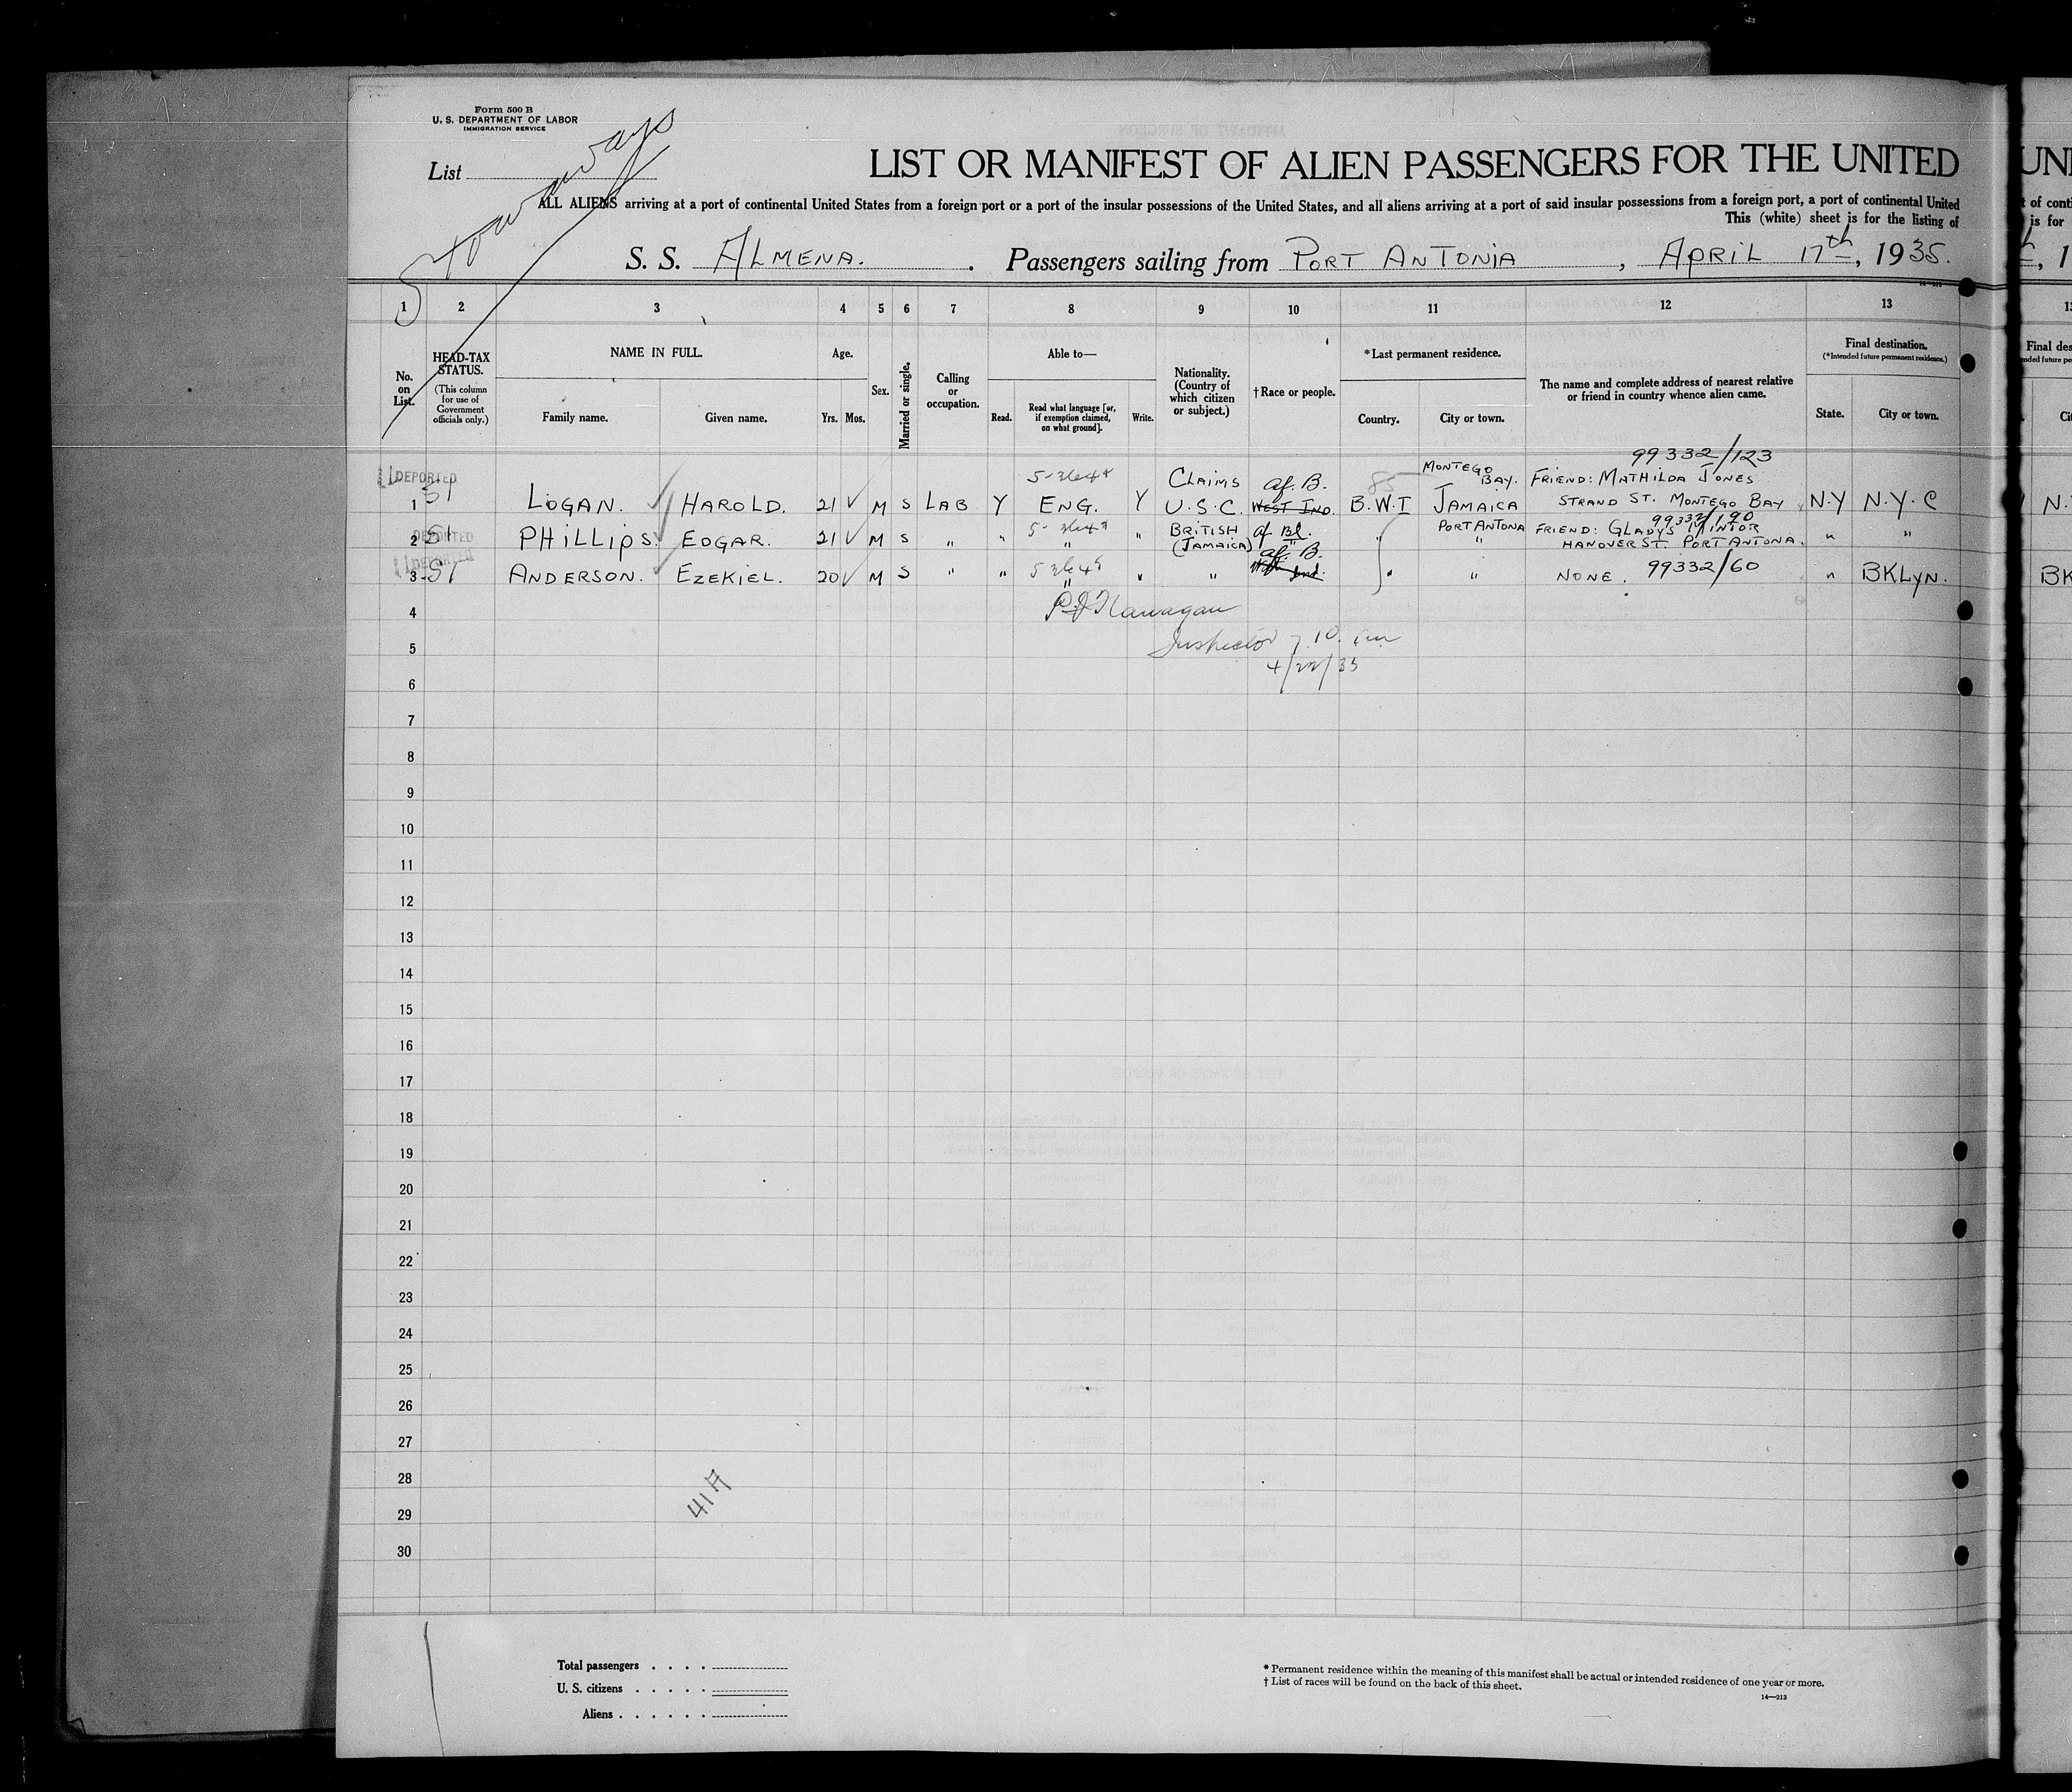 Form 500 B
U. S. DEPARTMENT OF LABOR
IMMIGRATION SERVICE
List
Stowaways
LIST OR MANIFEST OF ALIEN PASSENGERS FOR THE UNITED
ALL ALIENS arriving at a port of continental United States from a foreign port or a port of the insular possessions of the United States, and all aliens arriving at a port of said insular possessions from a foreign port, a port of continental United
This (white) sheet is for the listing of
S. S. ALMENA. Passengers sailing from PORT ANTONIA, APRIL 17th, 1935.
1 2 3 4 5 6 7 8 9 10 11 12 13
No. on List.
HEAD-TAX STATUS.
(This column for use of Government officials only.)
NAME IN FULL.
Family name. Given name.
Age.
Yrs. Mos.
Sex.
Married or single.
Calling or occupation.
Able to—
Read. Read what language [or, if exemption claimed, on what ground]. Write.
Nationality. (Country of which citizen or subject.)
†Race or people.
*Last permanent residence.
Country. City or town.
The name and complete address of nearest relative or friend in country whence alien came.
Final destination.
(*Intended future permanent residence.)
State. City or town.
99332/123
DEPORTED CLAIMS af. B. MONTEGO BAY. FRIEND: MATHILDA JONES
1 SI LOGAN. HAROLD. 21 M S LAB Y ENG. Y U.S.C. WEST IND. B.W.I JAMAICA STRAND ST. MONTEGO BAY N.Y N.Y.C
99332/190
DEPORTED BRITISH af Bl. PORT ANTONA FRIEND: GLADYS MINTOR
2 SI PHILLIPS. EDGAR. 21 M S " " " " (JAMAICA) " " HANOVER ST. PORT ANTONA. " "
DEPORTED af. B. 99332/60
3 SI ANDERSON. EZEKIEL. 20 M S " " " " " " " NONE. " BKLYN.
4 P.J. Flanagan
5 Inspector
4/22/35
6
7
8
9
10
11
12
13
14
15
16
17
18
19
20
21
22
23
24
25
26
27
28
29
30
41A
Total passengers
U. S. citizens
Aliens
* Permanent residence within the meaning of this manifest shall be actual or intended residence of one year or more.
† List of races will be found on the back of this sheet.
14—213